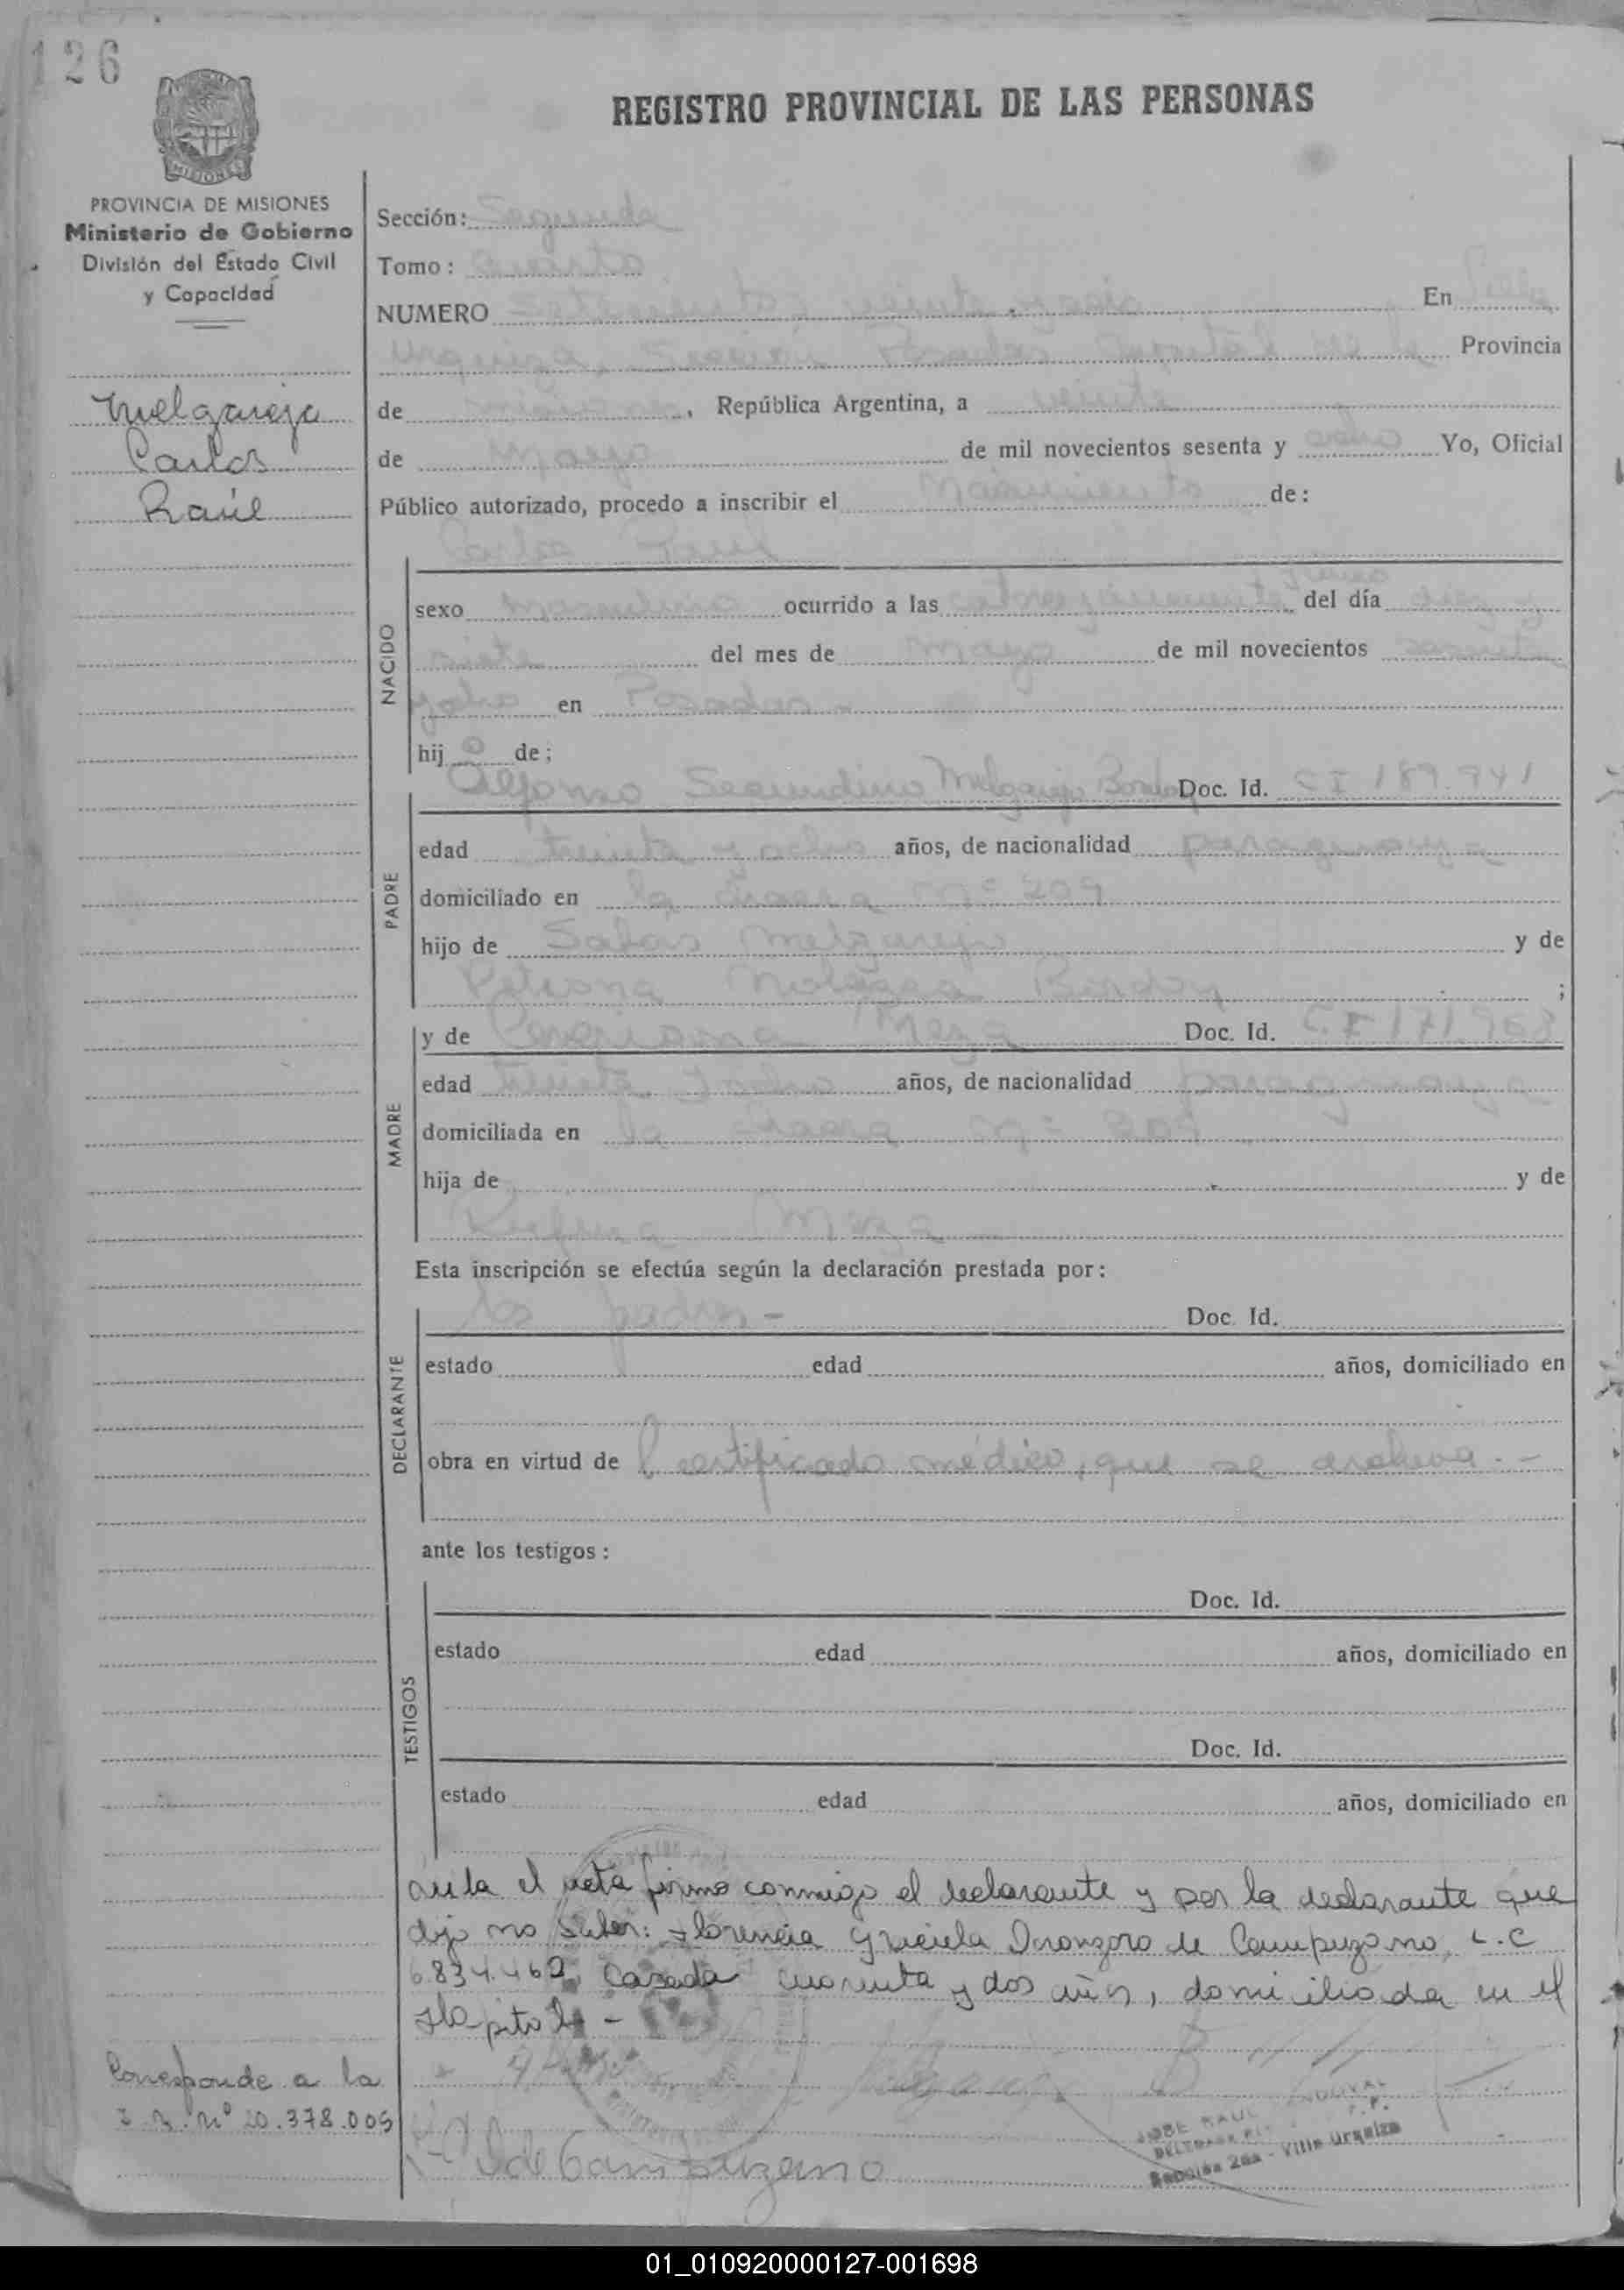 126
REGISTRO PROVINCIAL DE LAS PERSONAS
MISIONES
PROVINCIA DE MISIONES
Ministerio de Gobierno
División del Estado Civil
y Capacidad
Melgarejo
Carlos
Raúl
Sección: Segunda
Tomo: Cuarto
NUMERO setecientos veinte y seis En Villa
Urquiza, Sección Posadas Capital de la Provincia
de Misiones, República Argentina, a veinte
de Mayo de mil novecientos sesenta y ocho Yo, Oficial
Público autorizado, procedo a inscribir el Nacimiento de:
Carlos Raul
NACIDO
sexo masculino ocurrido a las del día diez y
siete del mes de Mayo de mil novecientos sesenta
y ocho en Posadas -
hijo de;
PADRE
Alfonso Secundino Melgarejo Bordoy Doc. Id. C I 189.941
edad treinta y ocho años, de nacionalidad paraguaya
domiciliado en la chacra Nº 209
hijo de Sabas Melgarejo y de
Petrona Bordoy ;
MADRE
y de Meza Doc. Id. C.I 171.968
edad treinta y ocho años, de nacionalidad paraguaya
domiciliada en la chacra Nº
hija de y de
Rufina Meza
Esta inscripción se efectúa según la declaración prestada por:
DECLARANTE
los padres - Doc. Id.
estado edad años, domiciliado en
obra en virtud de certificado médico, que se archiva. -
ante los testigos:
TESTIGOS
Doc. Id.
estado edad años, domiciliado en
Doc. Id.
estado edad años, domiciliado en
el acta firma conmigo el declarante y por la declarante que
dijo no saber: Florencia Graciela de Campuzano, L.C
6.834.462, casada cuarenta y dos años, domiciliada en el
Hospital -
Corresponde a la
nº 20.378.005
de Campuzano
JOSE RAUL
Sección 2da - Villa Urquiza
01_010920000127-001698